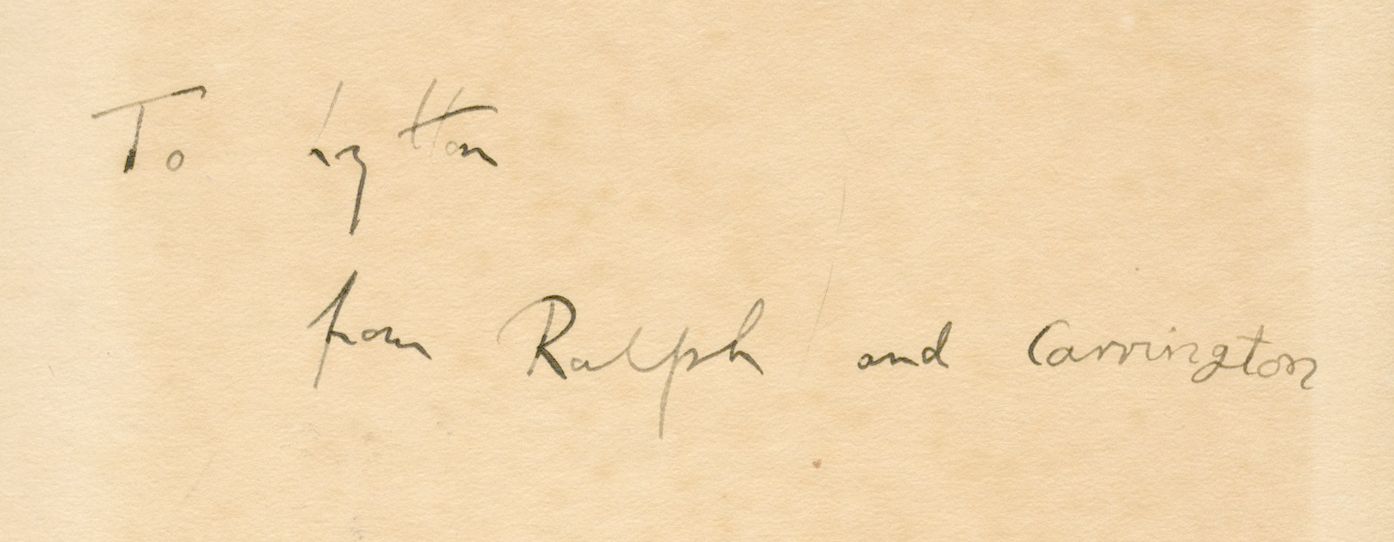 To Lytton
from Ralph and Carrington